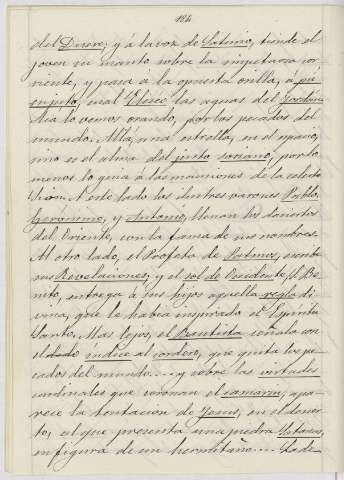 184
del Duero; y á la voz de Saturio, tiende el
joven su manto sobre la impetuosa cor-
riente, y pasa á la opuesta orilla, á pié
enjuto, cual Eliseo las aguas del Jordán.
Acá lo vemos orando, por los pecados del
mundo. Allá, una estrella, en el espacio,
sino es el alma del justo soriano, por lo
menos lo guia á las mansiones de la celeste
Sion. A este lado los ilustres varones Pablo,
Gerónimo, y Antonio, llenan los desiertos
del Oriente, con la fama de sus nombres.
Al otro lado, el Profeta de Patmos, escribe
sus Revelaciones; y el sol de Occidente, S. Be-
nito, entrega á sus hijos aquella regla di-
vina, que le habia inspirado el Espíritu
Santo. Mas lejos, el Bautista señala con
el dedo indice al cordero, que quita los pe-
cados del mundo.... y sobre las virtudes
cardinales que coronan el camarin, apa-
rece la tentacion de Jesus, en el desier-
to, al que presenta una piedra Satanas,
en figura de un hermitaño....